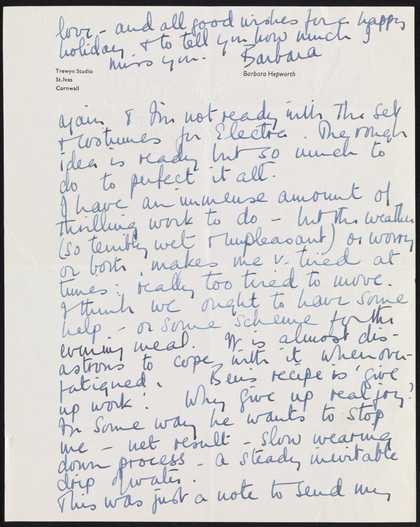 love – and all good wishes for a happy
holiday & to tell you how much I
miss you. Barbara
Trewyn Studio
St. Ives
Cornwall
Barbara Hepworth
again & I'm not ready with the set
& costumes for Electra. The rough
idea is ready but so much to
do to perfect it all.
I have an immense amount of
thrilling work to do – but this weather
(so terribly wet & unpleasant) or worry
or both, makes me v. tired at
times: really too tired to move.
I think we ought to have some
help – or some scheme for the
evening meal. It is almost dis-
astrous to cope with it when over-
fatigued. Ben's recipe is 'give
up work'! Why give up real joy?
In some way he wants to stop
me – net result – slow wearing
down process – a steady inevitable
drip of water.
This was just a note to send my